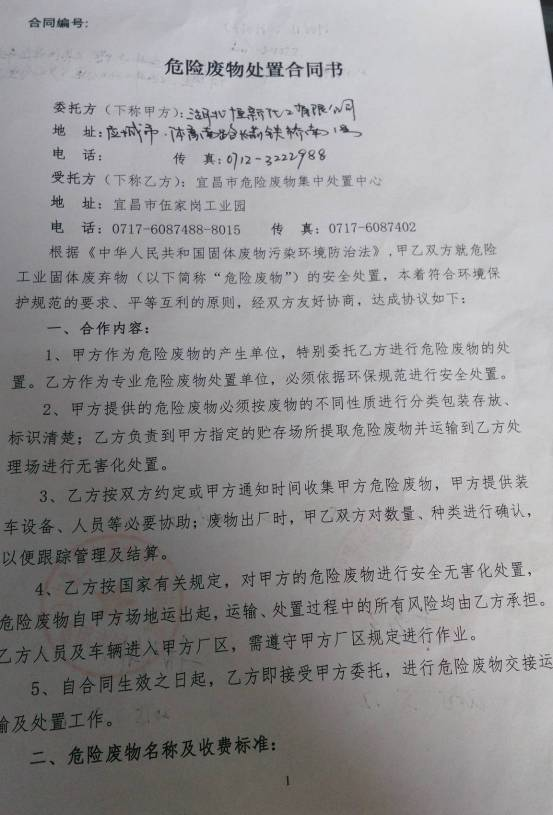 合同编号:
危险废物处置合同书
委托方（下称甲方）：湖北恒新化工有限公司
地 址：应城市
电 话： 传 真：0712-3222988
受托方（下称乙方）：宜昌市危险废物集中处置中心
地 址：宜昌市伍家岗工业园
电 话：0717-6087488-8015 传 真：0717-6087402
根据《中华人民共和国固体废物污染环境防治法》,甲乙双方就危险
工业固体废弃物（以下简称“危险废物”）的安全处置，本着符合环境保
护规范的要求、平等互利的原则，经双方友好协商，达成协议如下：
一、合作内容：
1、甲方作为危险废物的产生单位，特别委托乙方进行危险废物的处
置。乙方作为专业危险废物处置单位，必须依据环保规范进行安全处置。
2、甲方提供的危险废物必须按废物的不同性质进行分类包装存放、
标识清楚；乙方负责到甲方指定的贮存场所提取危险废物并运输到乙方处
理场进行无害化处置。
3、乙方按双方约定或甲方通知时间收集甲方危险废物，甲方提供装
车设备、人员等必要协助；废物出厂时，甲乙双方对数量、种类进行确认，
以便跟踪管理及结算。
4、乙方按国家有关规定，对甲方的危险废物进行安全无害化处置，
危险废物自甲方场地运出起，运输、处置过程中的所有风险均由乙方承担。
乙方人员及车辆进入甲方厂区，需遵守甲方厂区规定进行作业。
5、自合同生效之日起，乙方即接受甲方委托，进行危险废物交接运
输及处置工作。
二、危险废物名称及收费标准：
1